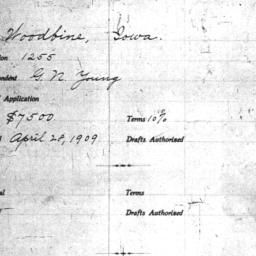 Woodbine, Iowa.
on 1255
ndent G. N. Young
Application
$7500 Terms 10%
April 28, 1909 Drafts Authorized
al Terms
Drafts Authorized